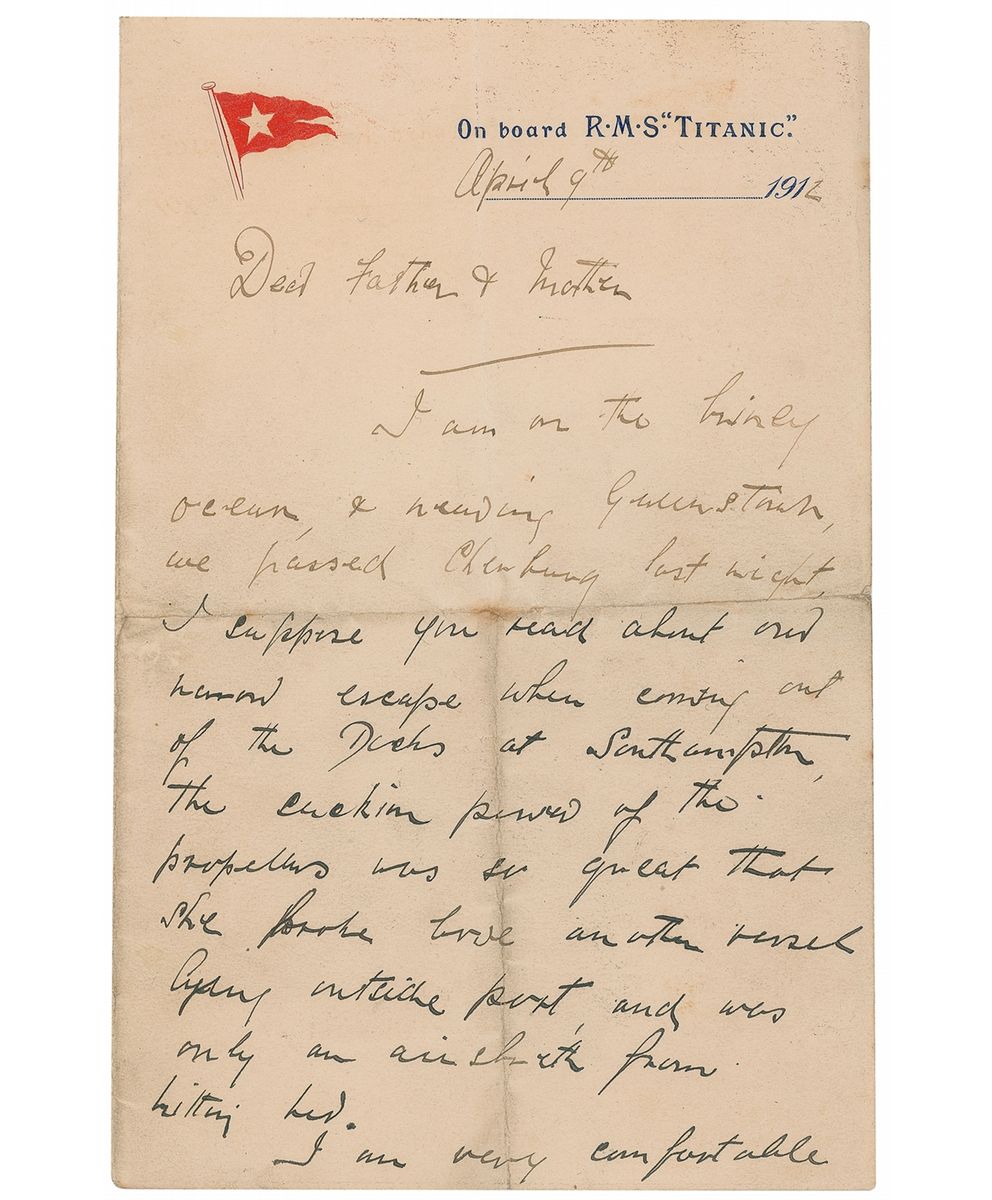 On board R·M·S·"TITANIC."
April 9th 1912
Dear Father & Mother
I am on the brinely
ocean, & nearing Queenstown,
we passed Cherburg last night,
I suppose you read about our
narrow escape when coming out
of the Docks at Southampton,
the suckion power of the
propellers was so great that
she broke lose another vessel
lying outside port, and was
only an from
hitting her.
I am very comfortable